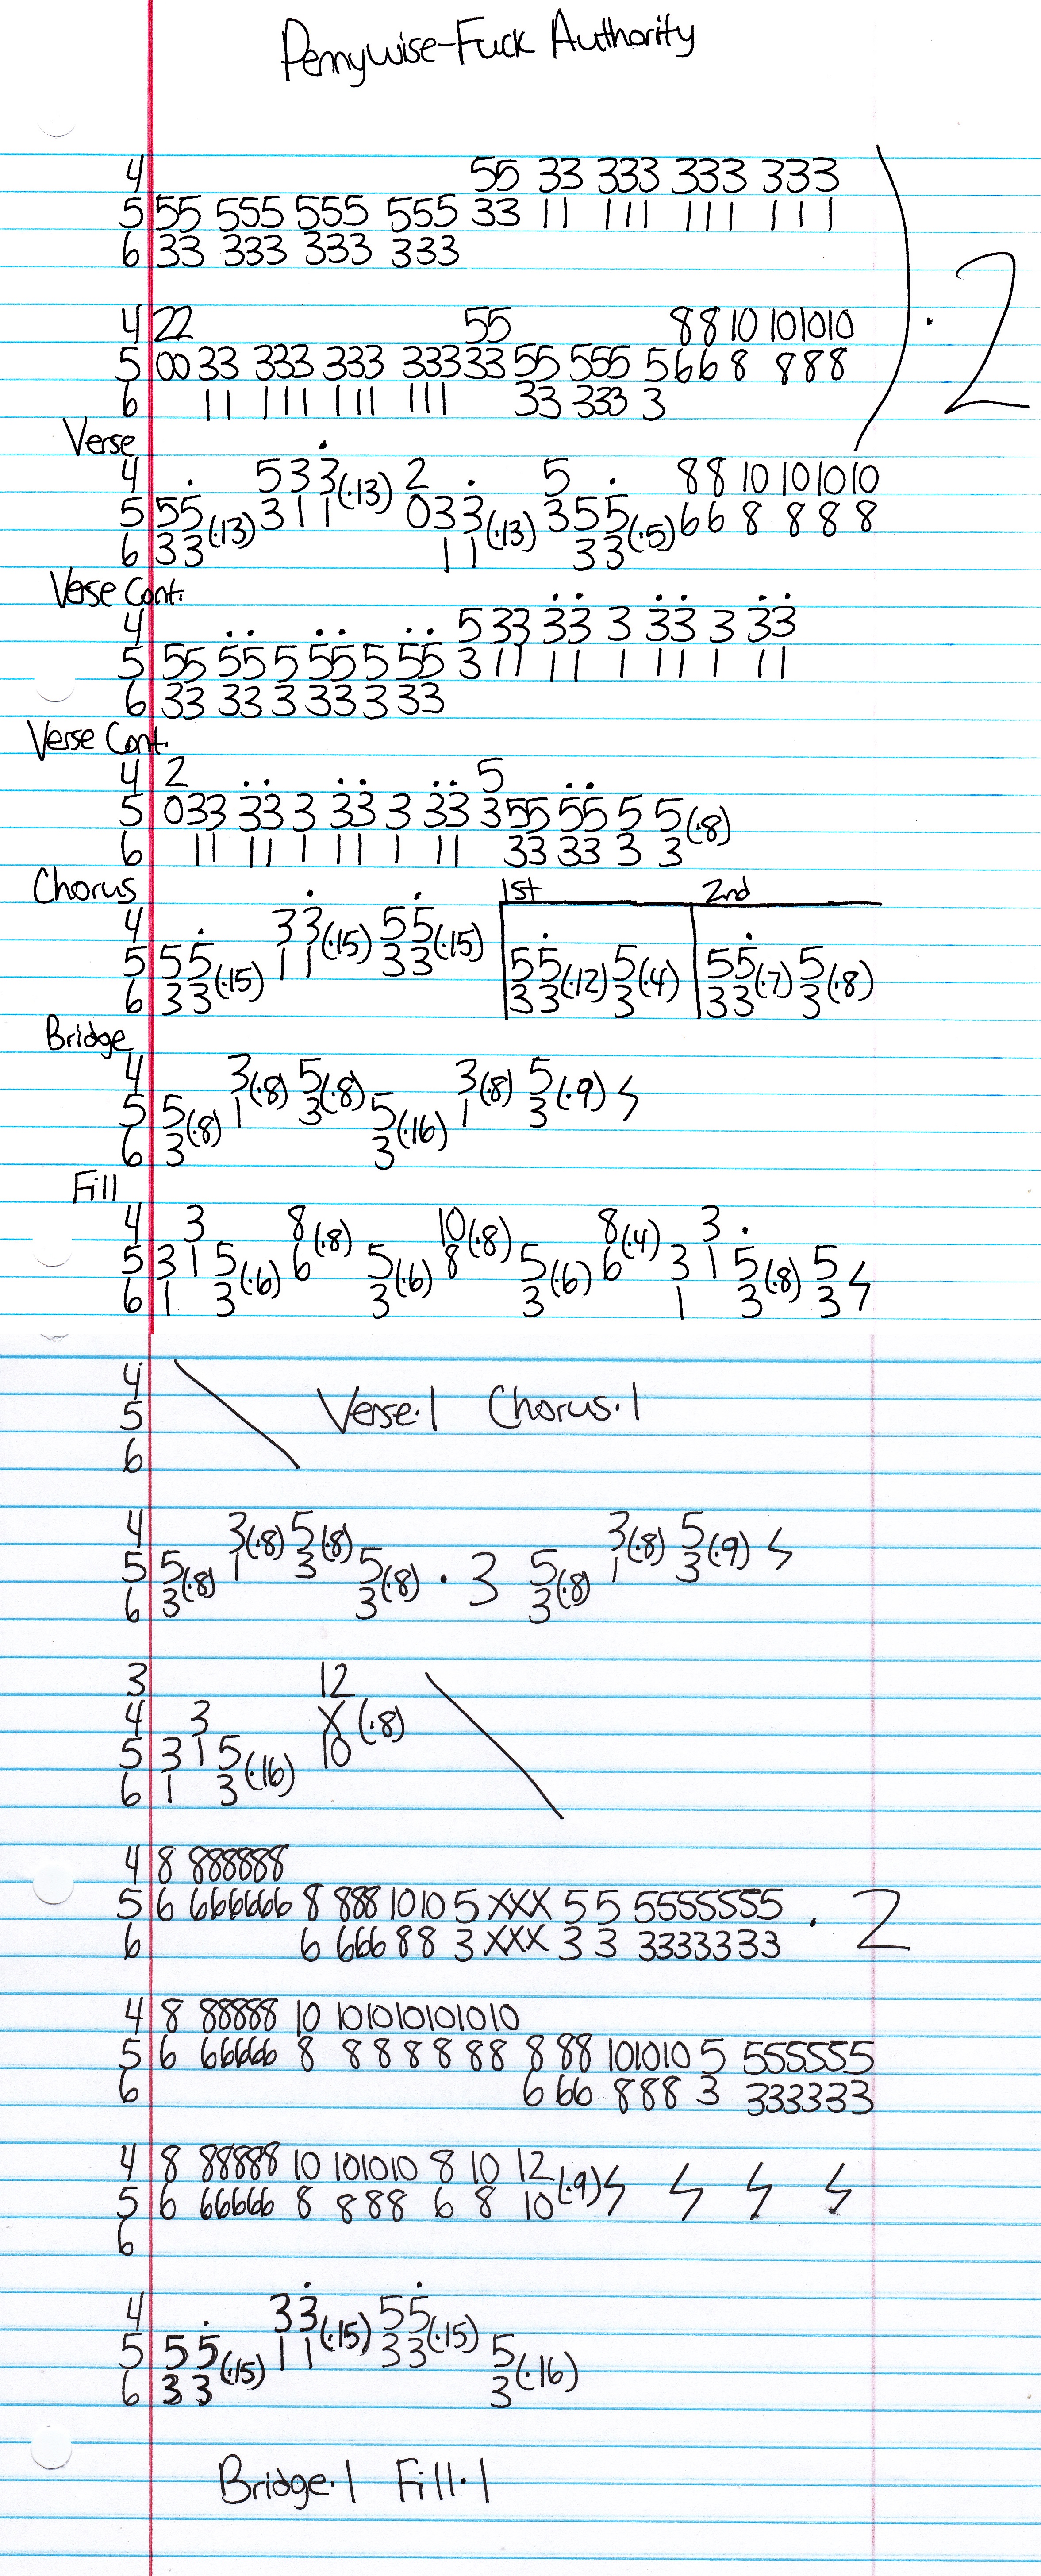 Pennywise-Fuck Authority
4 55 33 333 333 333
5 55 555 555 555 33 11 111 111 111
6 33 333 333 333
4 22 55 88 10 101010
5 00 33 333 333 333 33 55 555 5 66 8 888
6 11 111 111 111 33 333 3
) · 2
Verse
4 533(·13) 2 5 88 10 101010
5 55(·13) 311 033(·13) 355(·5) 66 8 8 8 8
6 33 11 33
Verse Cont.
4 5 33 33 3 33 3 33
5 55 55 5 55 5 55 3 11 11 1 11 1 11
6 33 33 3 33 3 33
Verse Cont.
4 2 5
5 033 33 3 33 3 33 3 55 55 5 5(·8)
6 11 11 1 11 1 11 33 33 3 3
Chorus 1st 2nd
4 33(·15) 55(·15)
5 55(·15) 11 33 55(·12) 5(·4) 55(·7) 5(·8)
6 33 33 3 33 3
Bridge
4 3(·8) 5(·8) 3(·8) 5(·9)
5 5(·8) 1 3 5(·16) 1 3
6 3 3
Fill
4 3 8(·8) 10(·8) 8(·4) 3 ·
5 3 1 5(·6) 6 5(·6) 8 5(·6) 6 3 1 5(·8) 5
6 1 3 3 3 1 3 3
4
5 Verse·1 Chorus·1
6
4 3(·8) 5(·8) 3(·8) 5(·9)
5 5(·8) 1 3 5(·8) · 3 5(·8) 1 3
6 3 3 3
3 12
4 3 X(·8)
5 3 1 5(·16) 10
6 1 3
4 8 888888
5 6 666666 8 888 1010 5 XXX 5 5 5555555 · 2
6 6 666 88 3 XXX 3 3 3333333
4 8 88888 10 101010101010
5 6 66666 8 8 8 8 8 88 8 88 101010 5 555555
6 6 66 888 3 333333
4 8 88888 10 101010 8 10 12(·9)
5 6 66666 8 888 6 8 10
6
4 33(·15) 55(·15)
5 55(·15) 11 33 5(·16)
6 33 3
Bridge·1 Fill·1